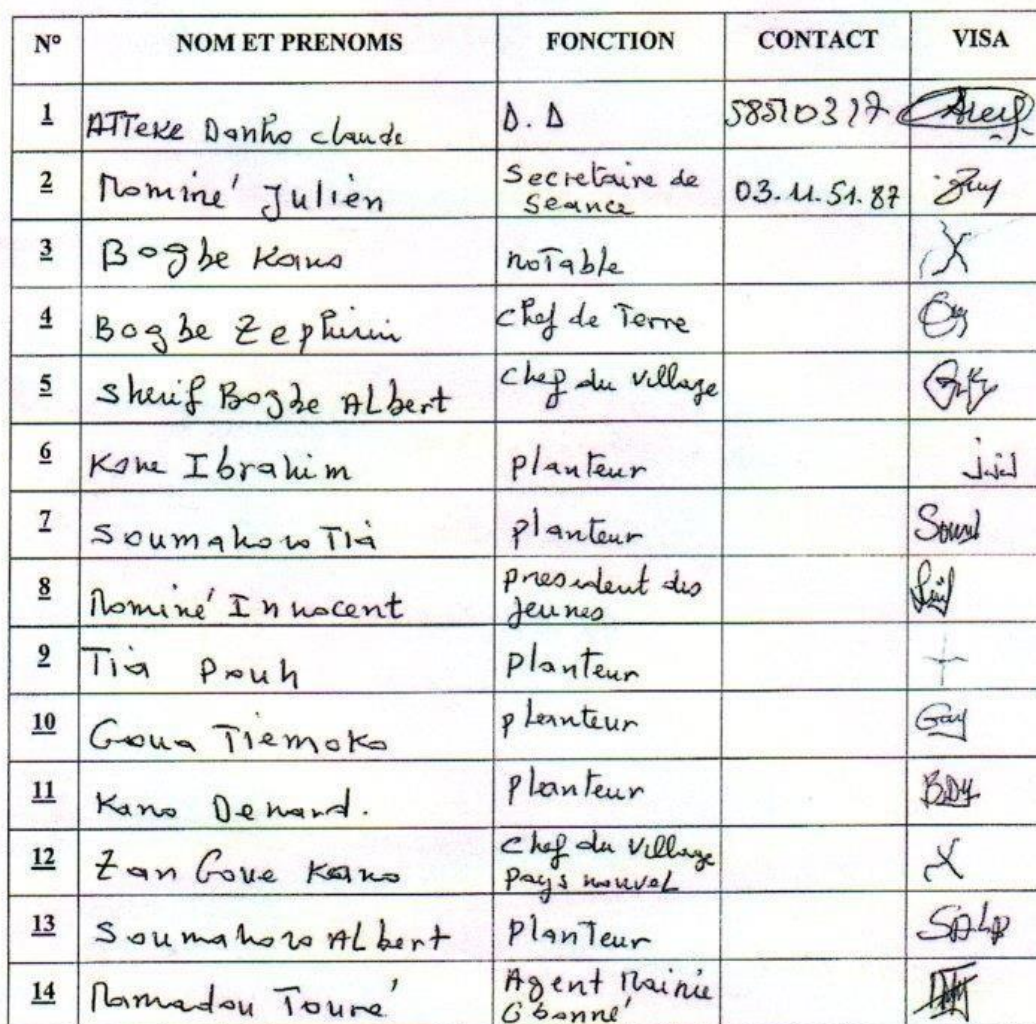 N° NOM ET PRENOMS FONCTION CONTACT VISA
1 ATTEKE Danho claude D.D 58510317
2 Mominé Julien Secretaire de
Seance 03.11.51.87
3 Bogbe Kano notable
4 Bogbe Zephirin chef de Terre
5 Sherif Bogbe ALbert chef du village
6 Kone Ibrahim planteur
7 Soumahoro Tia planteur
8 Mominé Innocent president des
jeunes
9 Tia Pouh planteur
10 Goua Tiemoko planteur Gay
11 Kano Denard. planteur
12 Zan Goue Kano chef du village
pays nouvel
13 Soumahoro ALbert planteur
14 Mamadou Touré Agent Mairie
Gbonné